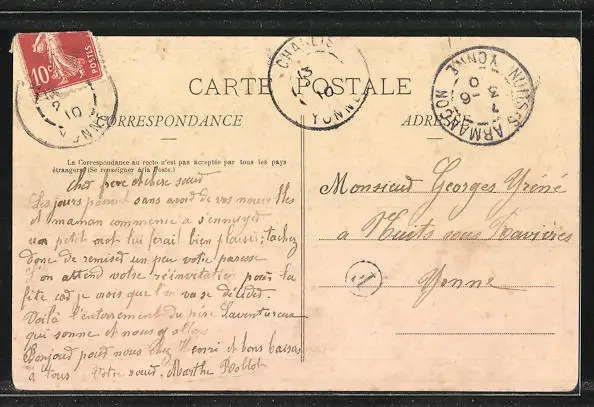 10c POSTES
CHABLIS
13
10
YONNE
NUITS-S-ARMANÇON
7
3
10
YONNE
CARTE POSTALE
CORRESPONDANCE
ADRESSE
La Correspondance au recto n'est pas acceptée par tous les pays
étrangers (Se renseigner à la Poste.)
Cher frère et chère sœur
Les jours passent sans avoir de vos nouvelles
et maman commence a s'ennuyer
un petit mot lui ferai bien plaisir; tachez
donc de remuer un peu votre paresse
l'on attend votre réinvitation pour la
fête car je crois que l'on va se décider.
Voilà l'enterrement du père Laventureux
qui sonne et nous y allons
Bonjour pour nous chez Henri et bons baisers
à tous Votre sœur. Marthe Roblot
Monsieur Georges
a Nuits sous Ravières
Yonne